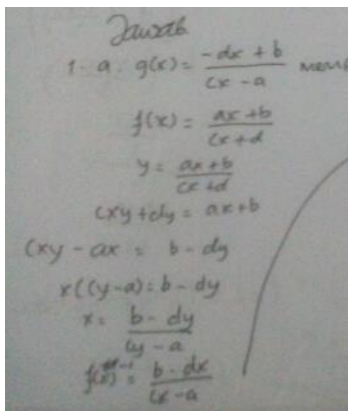 Jawab
1. a. g(x) = -dx + b / cx - a
f(x) = ax+b / cx+d
y = ax+b / cx+d
cxy + dy = ax+b
cxy - ax = b - dy
x(cy-a) = b - dy
x = b - dy / cy - a
f(x)⁻¹ = b - dx / cx - a